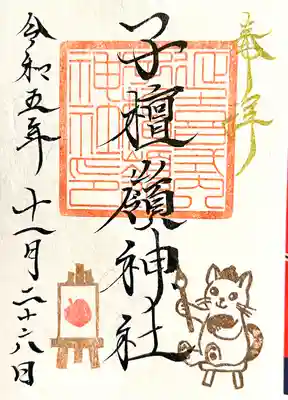 奉拝
延喜式内
神社印
子檀嶺神社
令和五年 十一月二十六日